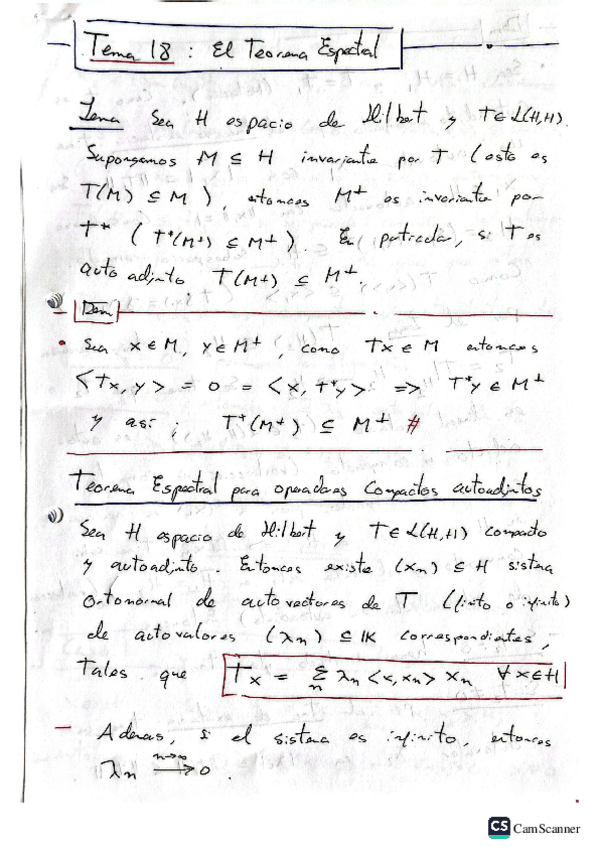 Tema 18 : El Teorema Espectral
Lema Sea H espacio de Hilbert y T∈L(H,H).
Supongamos M ⊆ H invariante por T (esto es
T(M) ⊆ M), entonces M⊥ es invariante por
T* (T*(M⊥) ⊆ M⊥). En particular, si T es
auto adjinto, T(M⊥) ⊆ M⊥.
Dem
• Sea x∈M, y∈M⊥, como Tx∈M entonces
<Tx,y> = 0 = <x,T*y> => T*y∈M⊥
y así; T*(M⊥) ⊆ M⊥ #
Teorema Espectral para operadores Compactos autoadjintos
Sea H espacio de Hilbert y T∈L(H,H) compacto
y autoadjinto. Entonces existe (xn) ⊆ H sistema
ortonormal de autovectores de T (finito o infinito)
de autovalores (λn) ⊆ IK correspondientes,
tales que Tx = Σn λn <x,xn> xn ∀x∈H
– Ademas, si el sistema es infinito, entonces
λn n→∞ → 0.
CS CamScanner